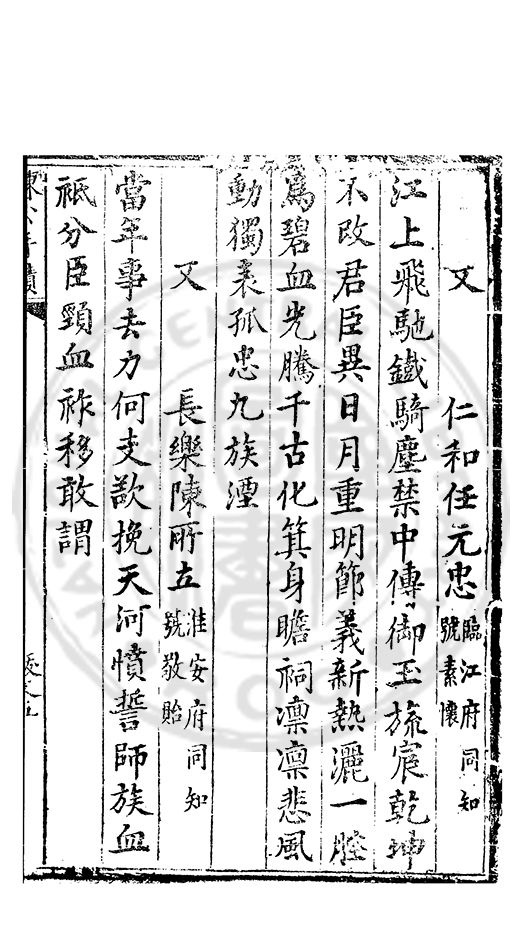 又 仁和任元忠 臨江府同知 號素懷
江上飛馳鐵騎塵禁中傳御玉旒宸乾坤
不改君臣異日月重明節義新熱灑一腔
為碧血光騰千古化箕身瞻祠凛凛悲風
動獨哀孤忠九族湮
又 長樂陳所立 淮安府同知 號敬貽
當年事去力何支歃挽天河憤誓師族血
祗分臣頸血祚移敢謂